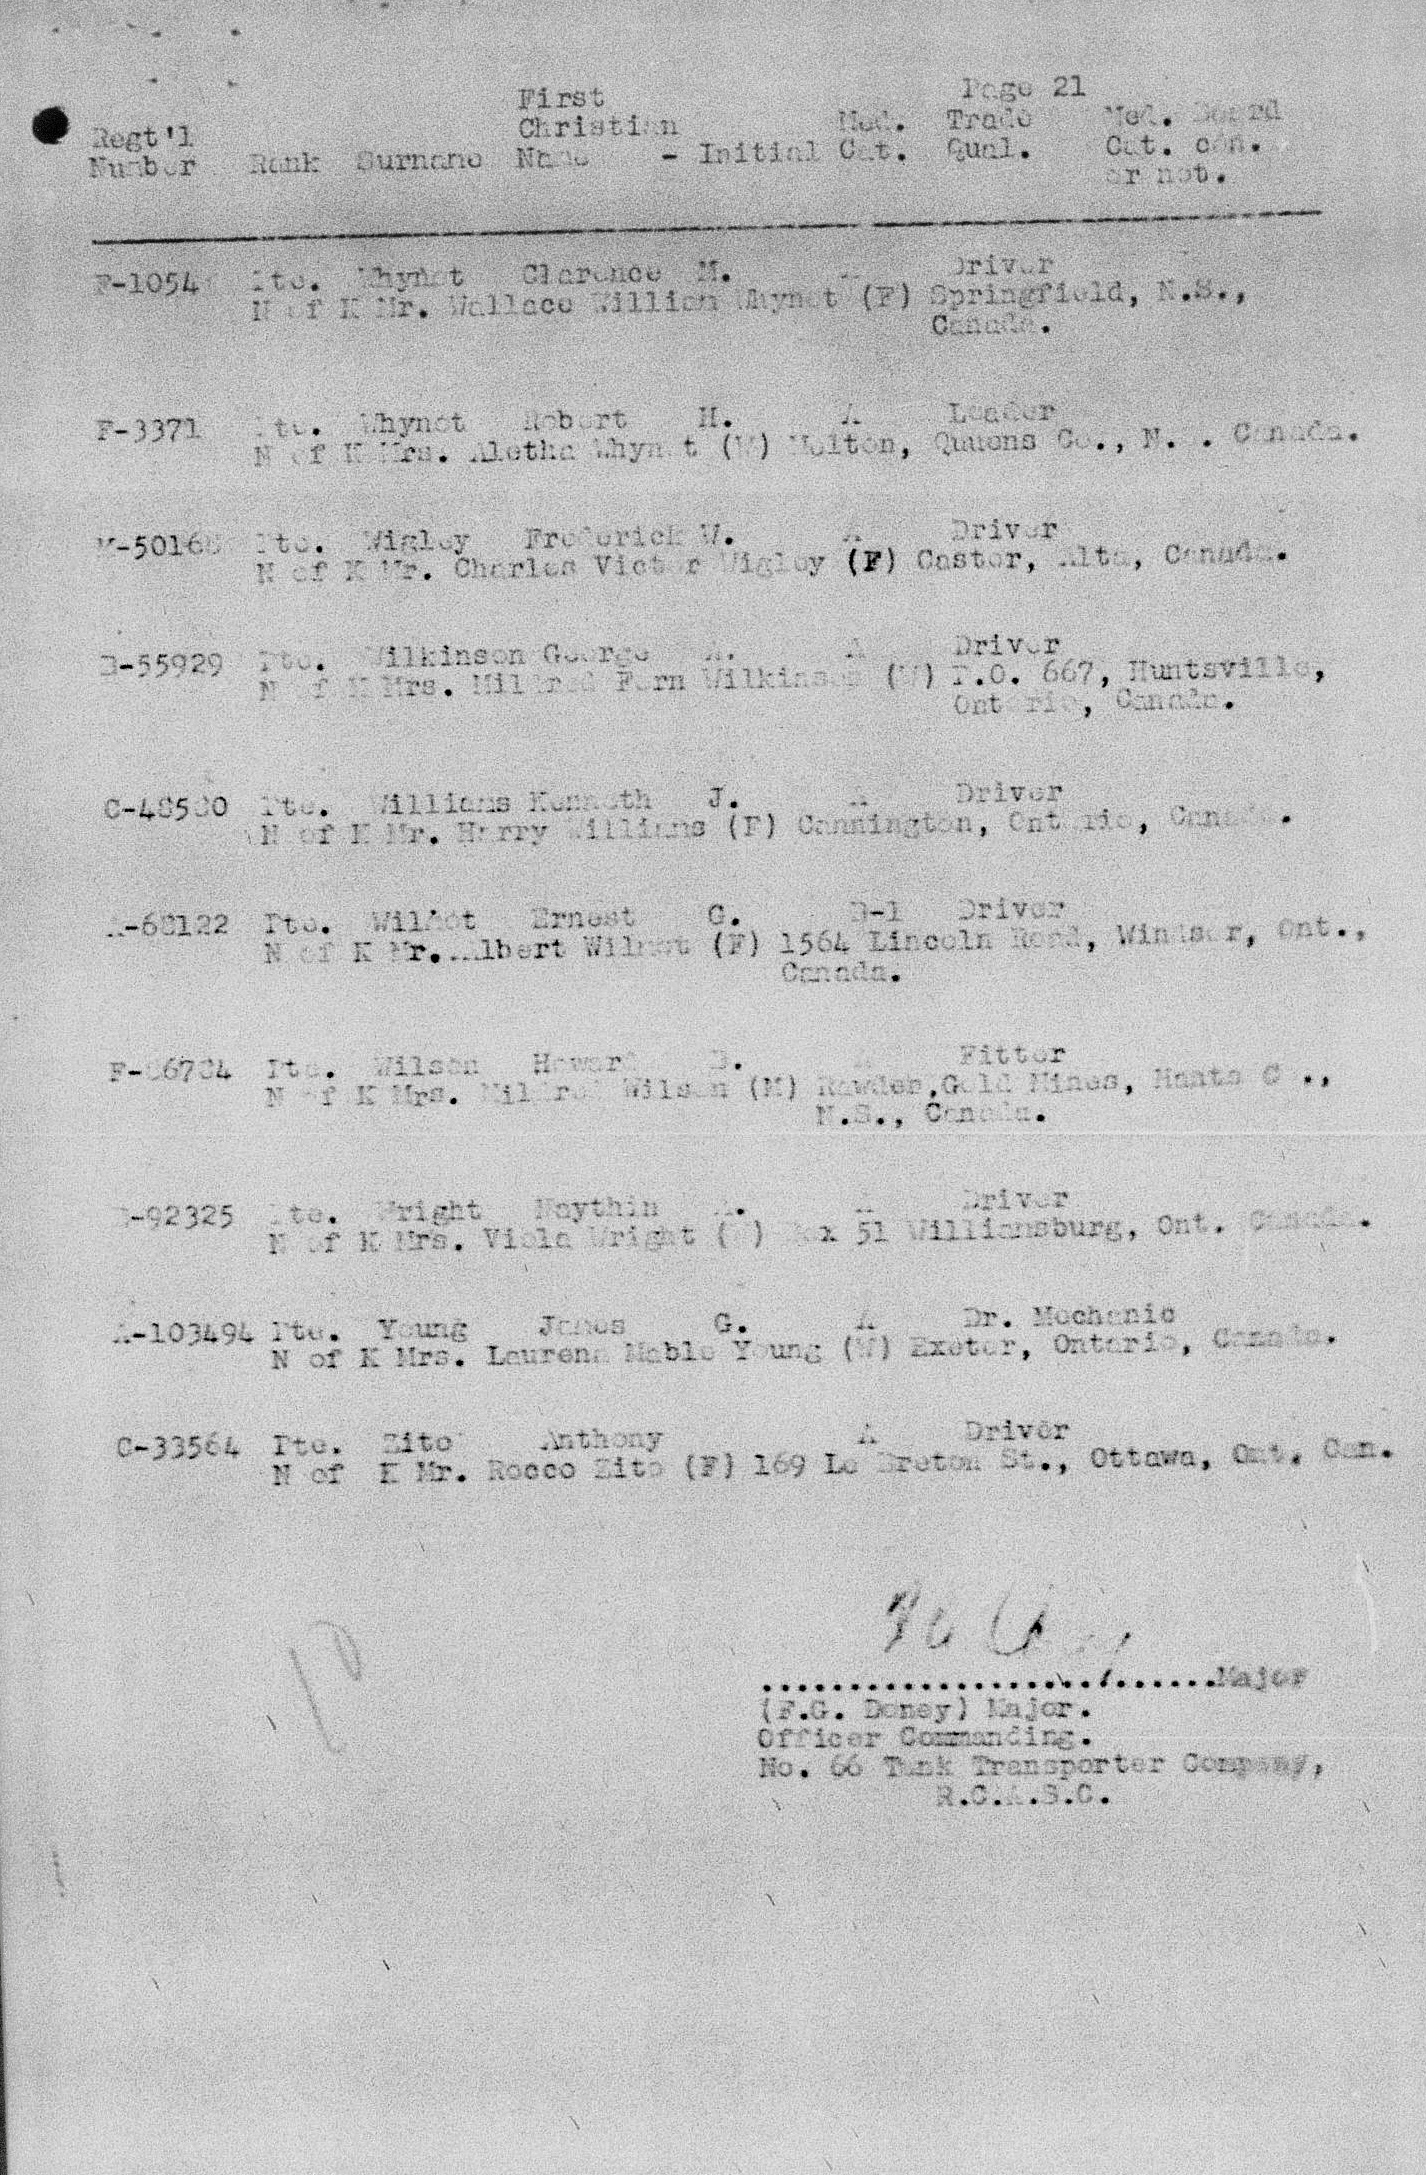 Page 21
First
Regt'l Christian Med. Trade Med. Board
Number Rank Surname Name - Initial Cat. Qual. Cat. con.
or not.
Pte. Whynot Clarence M. Driver
N of K Mr. Wallace William Whynot (F) Springfield, N.S.,
Canada.
F-3371 Pte. Whynot Robert H. A Leader
N of K Mrs. Aletha Whynot (W) Queens Co., N. . Canada.
Pte. Wigley Frederick W. A Driver
N of K Mr. Charles Victor Wigley (F) Castor, Alta, Canada.
B-55929 Pte. Wilkinson George A Driver
N of K Mrs. Mildred Fern Wilkinson (W) P.O. 667, Huntsville,
Ontario, Canada.
Pte. Williams Kenneth J. A Driver
N of K Mr. Harry Williams (F) Cannington, Ontario, Canada.
A-68122 Pte. Wilmot Ernest G. B-1 Driver
N of K Mr. Albert Wilmot (F) 1564 Lincoln Road, Windsor, Ont.,
Canada.
Pte. Wilson Howard B. Fitter
N of K Mrs. Mildred Wilson (M) Gold Mines, Hants Co.,
N.S., Canada.
Pte. Wright A Driver
N of K Mrs. Viola Wright Box 51 Williamsburg, Ont. Canada.
A-103494 Pte. Young James G. A Dr. Mechanic
N of K Mrs. Laurena Mable Young (W) Exeter, Ontario, Canada.
C-33564 Pte. Zito Anthony A Driver
N of K Mr. Rocco Zito (F) 169 Le Breton St., Ottawa, Ont. Can.
..........................Major
(F.G. Doney) Major.
Officer Commanding.
No. 66 Tank Transporter Company,
R.C.A.S.C.